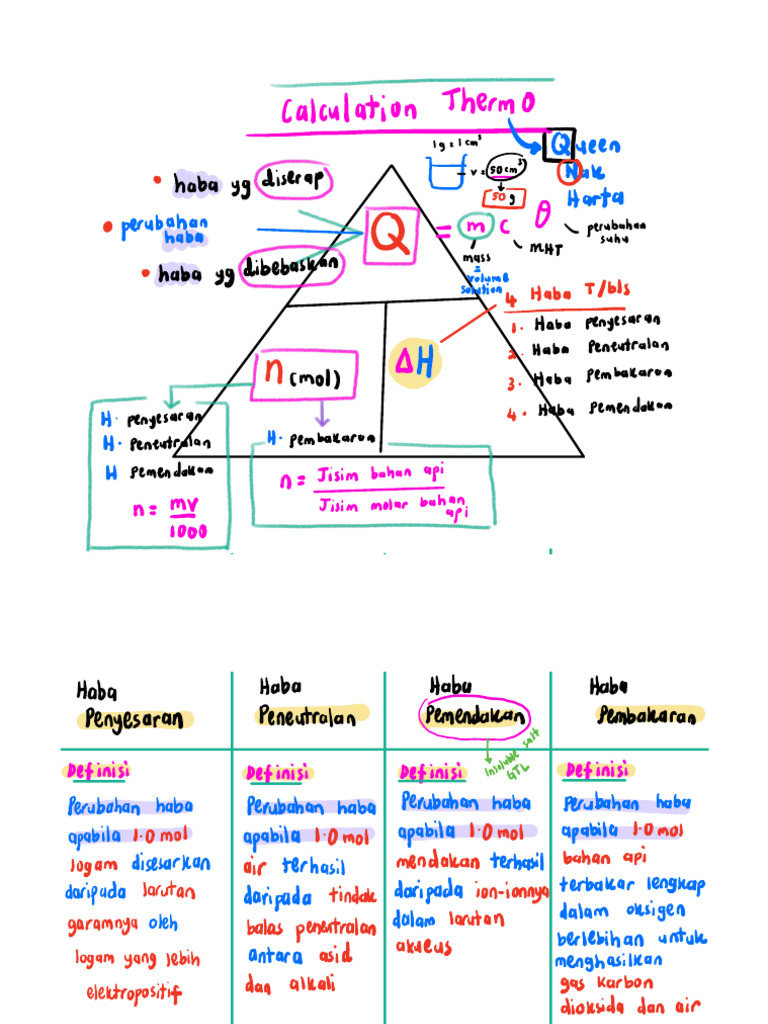 Calculation Thermo
Queen
Nak
Harta
1g = 1cm³
v = 50cm³
50g
• haba yg diserap
• perubahan
haba
• haba yg dibebaskan
Q = m c θ
perubahan
suhu
MHT
mass
=
volume
solution
4 Haba T/bls
1. Haba penyesaran
2. Haba Peneutralan
3. Haba Pembakaran
4. Haba Pemendakan
ΔH
n (mol)
H. penyesaran
H. Peneutralan
H Pemendakan
n = mv
1000
H. pembakaran
n = Jisim bahan api
Jisim molar bahan
api
Haba
Penyesaran
Definisi
Perubahan haba
apabila 1.0 mol
logam disesarkan
daripada larutan
garamnya oleh
logam yang lebih
elektropositif
Haba
Peneutralan
Definisi
Perubahan haba
apabila 1.0 mol
air terhasil
daripada tindak
balas peneutralan
antara asid
dan alkali
Haba
Pemendakan
insoluble salt
GTL
Definisi
Perubahan haba
apabila 1.0 mol
mendakan terhasil
daripada ion-ionnya
dalam larutan
akueus
Haba
Pembakaran
Definisi
Perubahan haba
apabila 1.0 mol
bahan api
terbakar lengkap
dalam oksigen
berlebihan untuk
menghasilkan
gas karbon
dioksida dan air